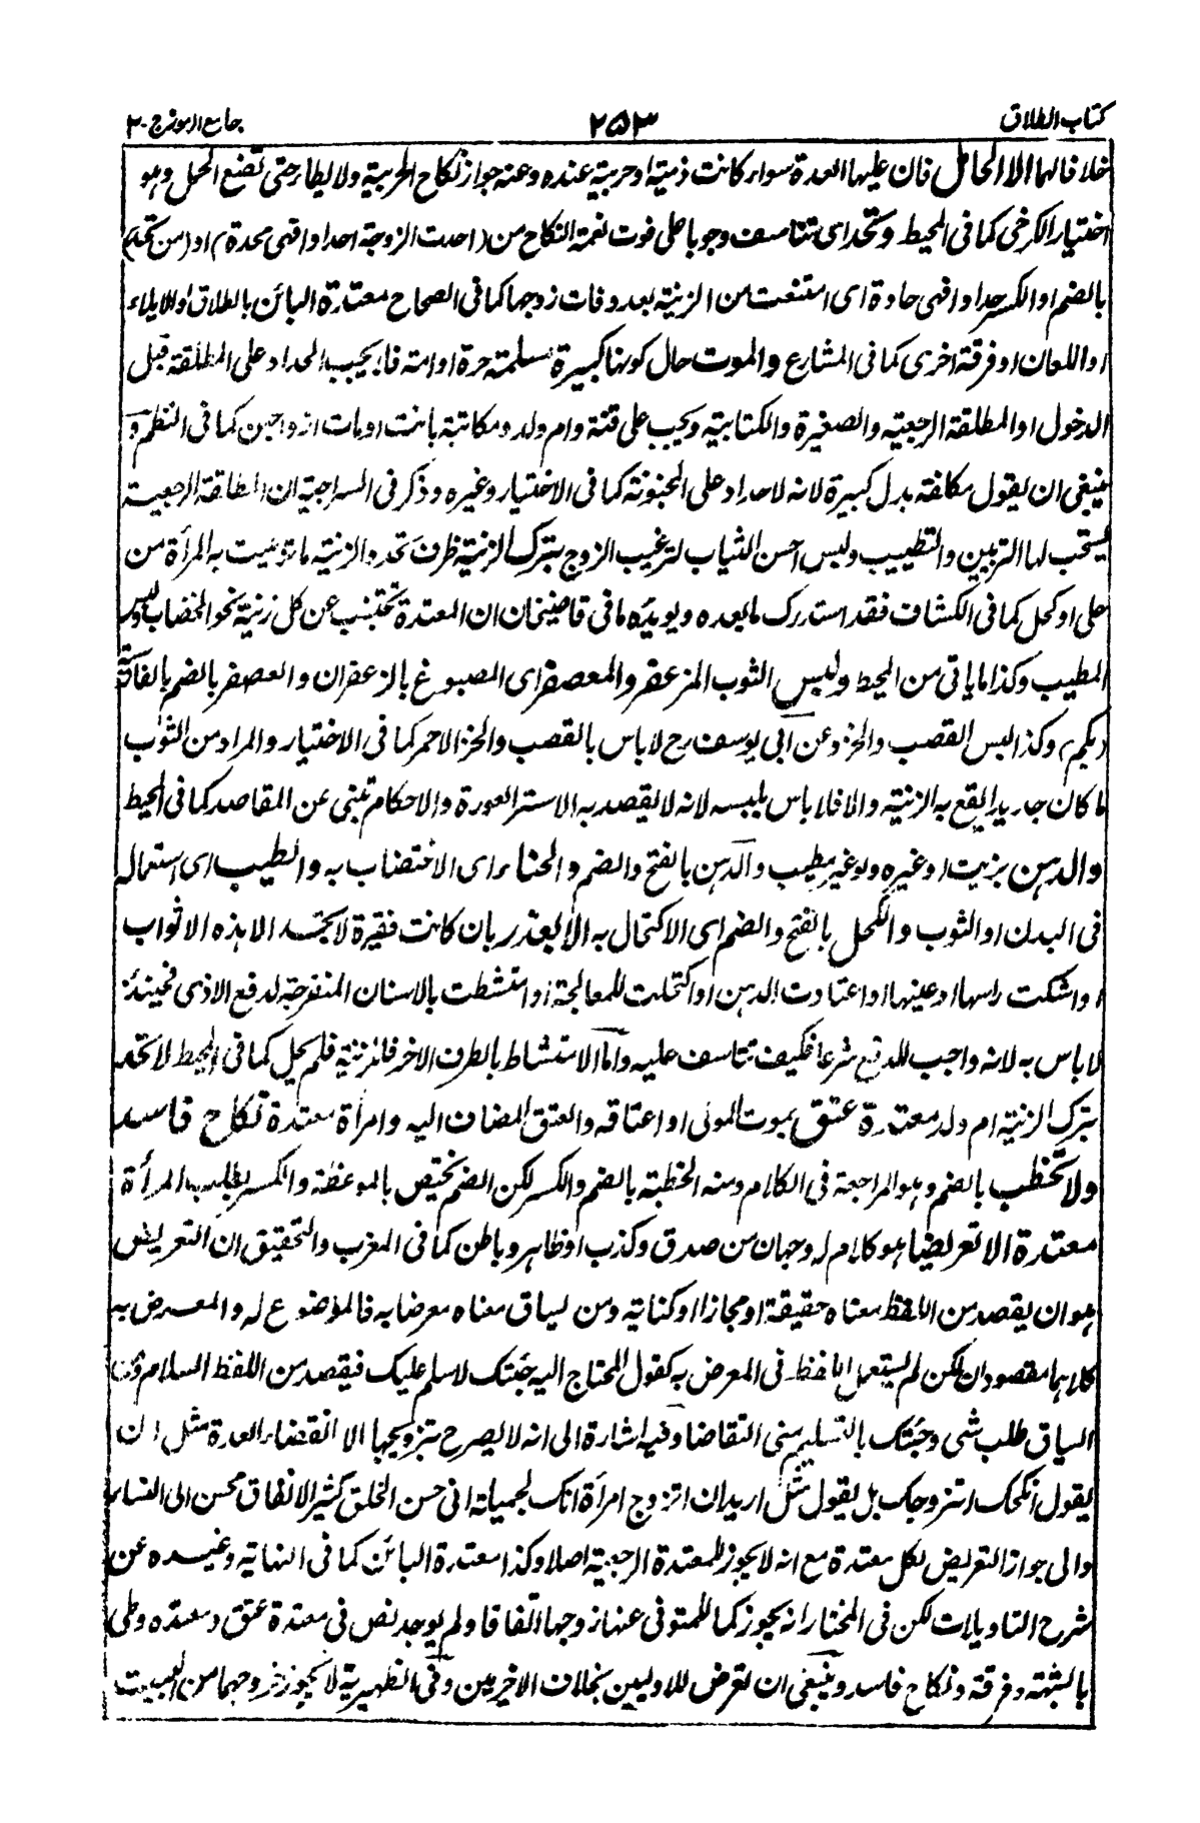 كتاب الطلاق ٢٥٣ جامع الرموز ج-٢
خلافا لهما الا الحامل فان عليها العدة سواء كانت ذمية او حربية عنده وعنه جواز نكاح الحربية ولا يطأ حتى تضع الحمل وهو
اختيار الكرخى كما فى المحيط وتحد اى تتاسف وجوبا على فوت نعمة النكاح من (احدت الزوجة احدادا فهى محدة) او (من تحد)
بالضم او الكسر حدادا فهى حادة اى امتنعت من الزينة بعد وفات زوجها كما فى الصحاح معتدة البائن بالطلاق او الايلاء
او اللعان او فرقة اخرى كما فى المشارع والموت حال كونها كبيرة مسلمة حرة او امة فلا يجب الحداد على المطلقة قبل
الدخول او المطلقة الرجعية والصغيرة والكتابية ويجب على قنة وام ولد ومكاتبة بانت او مات ازواجهن كما فى النظم و
ينبغى ان يقول مكلفة بدل كبيرة لانه لا حداد على المجنونة كما فى الاختيار وغيره وذكر فى السراجية ان المطلقة الرجعية
يستحب لها التزيين والتطييب ولبس احسن الثياب لترغيب الزوج بترك الزينة ظرف تحد والزينة ما تزينت به المرأة من
حلى او كحل كما فى الكشاف فقد استدرك ما بعده ويويده ما فى قاضيخان ان المعتدة تجتنب عن كل زينة نحو الخضاب ولبس
المطيب وكذا ما ياتى من المحيط ولبس الثوب المزعفر والمعصفر اى المصبوغ بالزعفران والعصفر بالضم بالفارسية
(بكم) وكذا لبس القصب والخز وعن ابى يوسف رح لا باس بالقصب والخز الاحمر كما فى الاختيار والمراد من الثوب
ما كان جديدا يقع به الزينة والا فلا باس بلبسه لانه لا يقصد به الا ستر العورة والاحكام تبنى عن المقاصد كما فى المحيط
والدهن بزيت او غيره ولو غير مطيب والدهن بالفتح والضم والحناء اى الاختضاب به والطيب اى استعماله
فى البدن او الثوب والكحل بالفتح والضم اى الاكتحال به الا بعذر بان كانت فقيرة لا تجد الا هذه الاثواب
او اشتكت راسها او عينها او اعتادت الدهن او اكتحلت للمعالجة او امتشطت بالاسنان المنفرجة لدفع الاذى فحينئذ
لا باس به لانه واجب للدفع شرعا فكيف تتاسف عليه واما الامتشاط بالطرف الاخر فلزينة فلم يحل كما فى المحيط لا تحد
بترك الزينة ام ولد معتدة عتق بموت المولى او اعتاقه والعتق المضاف اليه وامرأة معتدة نكاح فاسد
ولا تخطب بالضم وهو المراجعة فى الكلام ومنه الخطبة بالضم والكسر لكن الضم يختص بالموعظة والكسر بطلب المرأة
معتدة الا تعريضا هو كلام له وجهان من صدق وكذب او ظاهر وباطن كما فى المغرب والتحقيق ان التعريض
هو ان يقصد من اللفظ معناه حقيقة او مجازا او كناية ومن سياق معناه معرضا به فالموضوع له والمعرض به
كلاهما مقصودان لكن لم يستعمل اللفظ فى المعرض به كقول المحتاج اليه جئتك لاسلم عليك فيقصد من اللفظ السلام ومن
السياق طلب شى وجئتك بالتسليم منى التقاضا وفيه اشارة الى انه لا يصرح بتزويجها الا انقضاء العدة مثل ان
يقول انكحك اتزوجك بل يقول مثل اريد ان اتزوج امرأة انك لجميلة انى حسن الخلق كثير الانفاق محسن الى النساء
والى جواز التعريض لكل معتدة مع انه لا يجوز للمعتدة الرجعية اصلا وكذا معتدة البائن كما فى النهاية وغيره عن
شرح التاويلات لكن فى المختار انه يجوز كما للمتوفى عنها زوجها اتفاقا ولم يوجد نص فى معتدة عتق ومعتدة وطى
بالشبهة وفرقة ونكاح فاسد وينبغى ان تعرض للاوليين بخلاف الاخريين وفى الظهيرية لا يجوز خروجهما من البيت